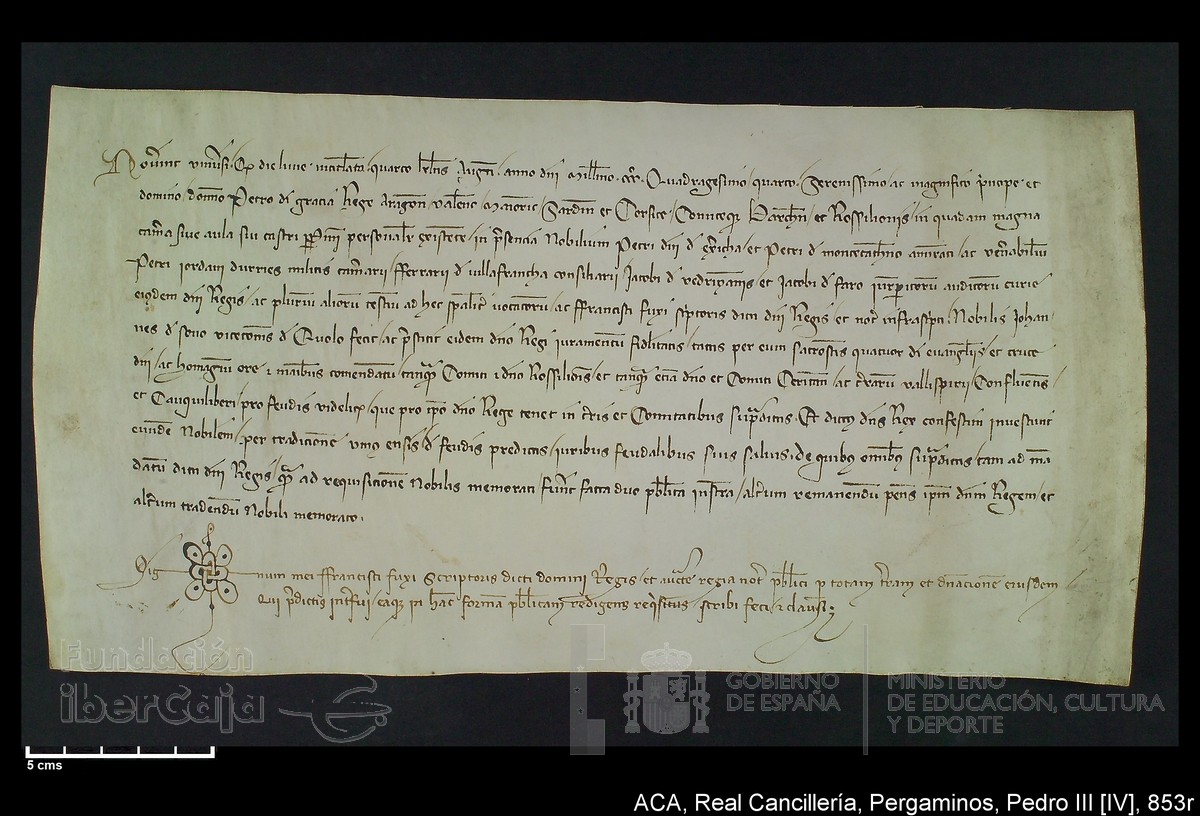 Nov̄int vniv̄si · Q̄ die lune · intitlata · quarto kl̄ns Augti · anno dn̄i Mill̄mo · CCC · Quadragesimo · quarto · Serenissimo ac magnifico p̄ncipe et
domino · domno Petro di gracia Rege Aragon̄ Valenc̄ Maioric̄ · Sardin̄ et Corsice · Comiteq̄ Barchn̄ et Rossilionis in quadam magna
cam̄a siue aula sui castri ꝑsonalr̄ existente / in p̄sencia Nobilium Petri dn̄i d exericha et Petri d montecatheno amirati / ac ven̄abiliū
Petri iordani durries militis cam̄arii / fferrarii d villafrancha consiliarii Jacobi d et Jacobi d faro iurp̄itorū auditorū curie
eiusdem dn̄i Regis / ac plurium aliorū testiū ad hec sp̄alit̄ uocatorū / ac ffrancisci fuxi sc̄ptoris dicti dn̄i Regis et not̄ infrasc̄pti · Nobilis Johan-
nes d sono vicecomes d Euolo fecit ac p̄stitit eidem dn̄o Regi iuramentū fidelitatis / tactis per eum sacros̄tis quatuor di euangliis et cruce
dn̄i / ac homagiū ore ⁊ manibus comendatū tanq̄ Comiti ⁊ dn̄o Rossilionis / et tanq̄ etiā dn̄o et Comiti Ceritan̄ / ac t̄rarū vallispirii / Confluentis
et Cauquiliberi / pro feudis videlicet / que pro ip̄o dn̄o Rege tenet in t̄ris et Comitatibus sup̄adictis · Et dictus dn̄s Rex confestim inuestiuit
eundē Nobilem / per tradicionē vnius ensis d feudis predictis / iuribus feudalibus suis saluis · de quibus om̄ibus sup̄adictis tam ad mā
datū dicti dn̄i Regis q̄ ad requisicionē Nobilis memorati / fuer̄t facta duo pb̄lica inst̄ra / alt̄um remanendū penes ip̄m dn̄m Regem / et
alt̄um tradendū Nobili memorato ·
Sig num mei ffrancisci fuxi Scriptoris dicti domini Regis / et auct̄e regia not̄ pb̄lici p totam t̄ram et dn̄acionē eiusdem
Qui p̄dictis int̄fui / eaq̄ in hāc formā pb̄licam redigens req̄situs scribi feci ⁊ clausi ;
5 cms
Fundación
iberCaja
GOBIERNO
DE ESPAÑA
MINISTERIO
DE EDUCACIÓN, CULTURA
Y DEPORTE
ACA, Real Cancillería, Pergaminos, Pedro III [IV], 853r